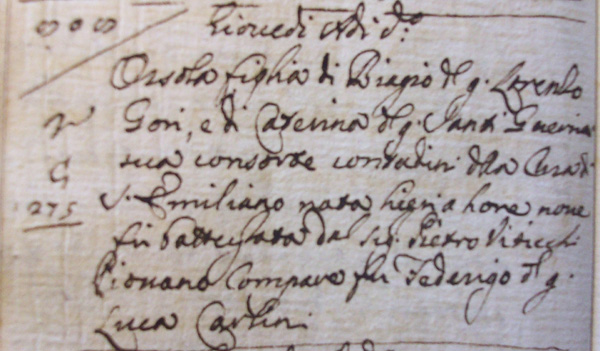 Giovedi Adi d.º
Orsola figlia di Biagio del q. Lorenzo
Gori, e di Caterina del q. Santi Guerrini
sua consorte contadini della Cura di
S. Emiliano nata hieri a hore nove
fu battezzata dal sig. Pietro
Piovano Compare fu Federigo del q.
Luca Carlini
G
275